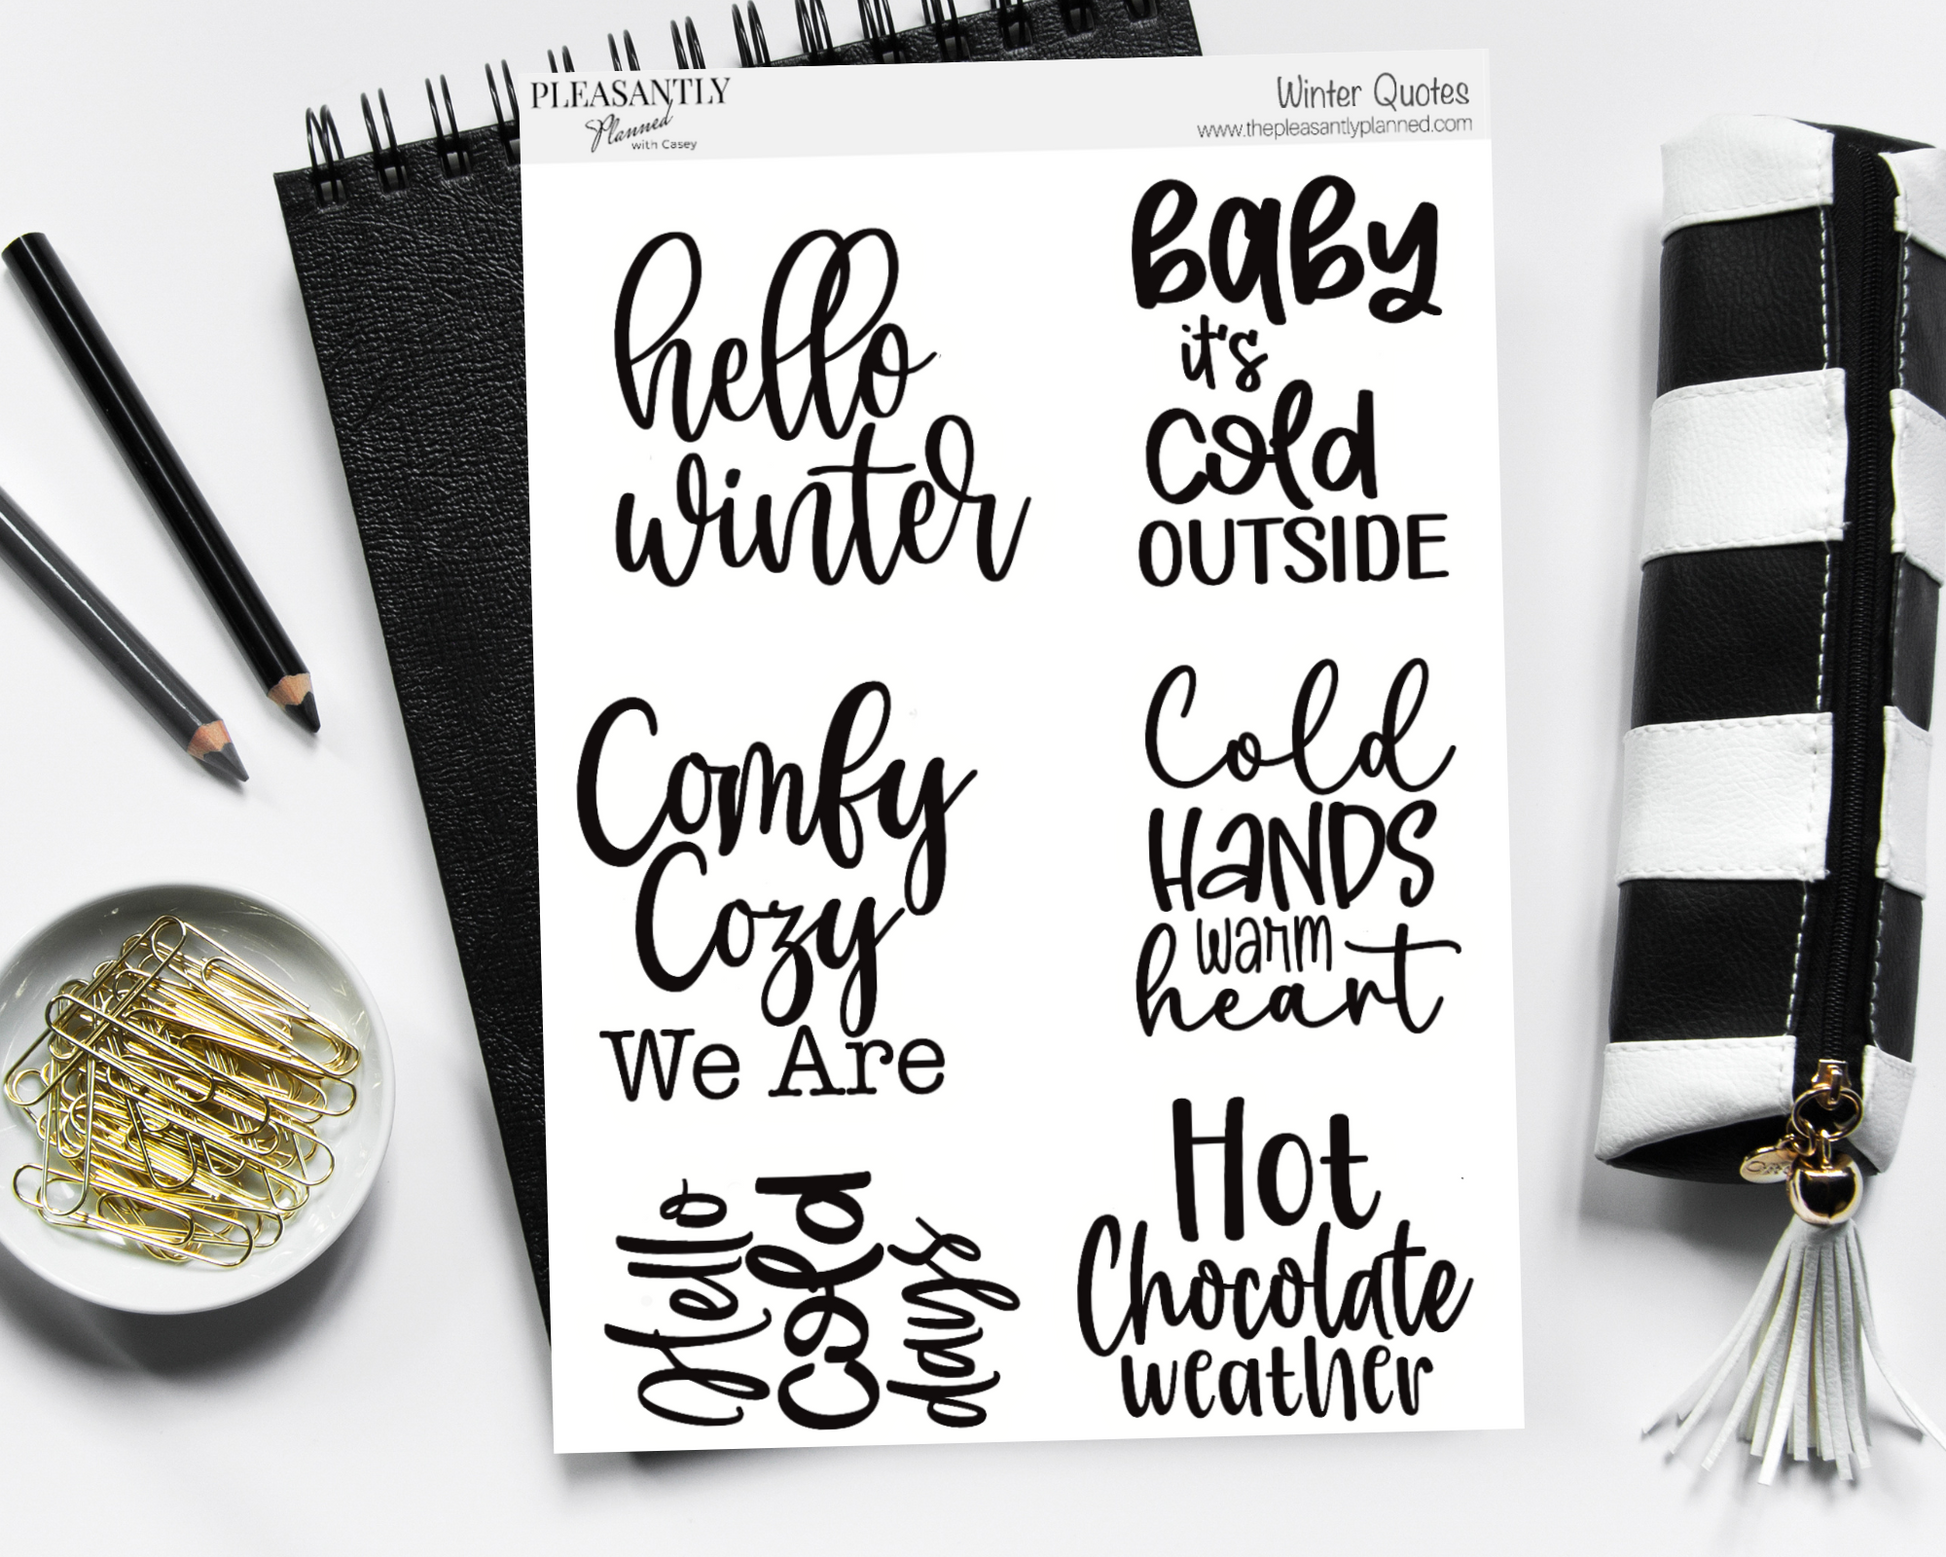 PLEASANTLY
Planned
with Casey
Winter Quotes
www.thepleasantlyplanned.com
hello
winter
baby
it's
cold
OUTSIDE
Comfy
Cozy
We Are
Cold
HANDS
warm
heart
Hello
cold
days
Hot
Chocolate
weather